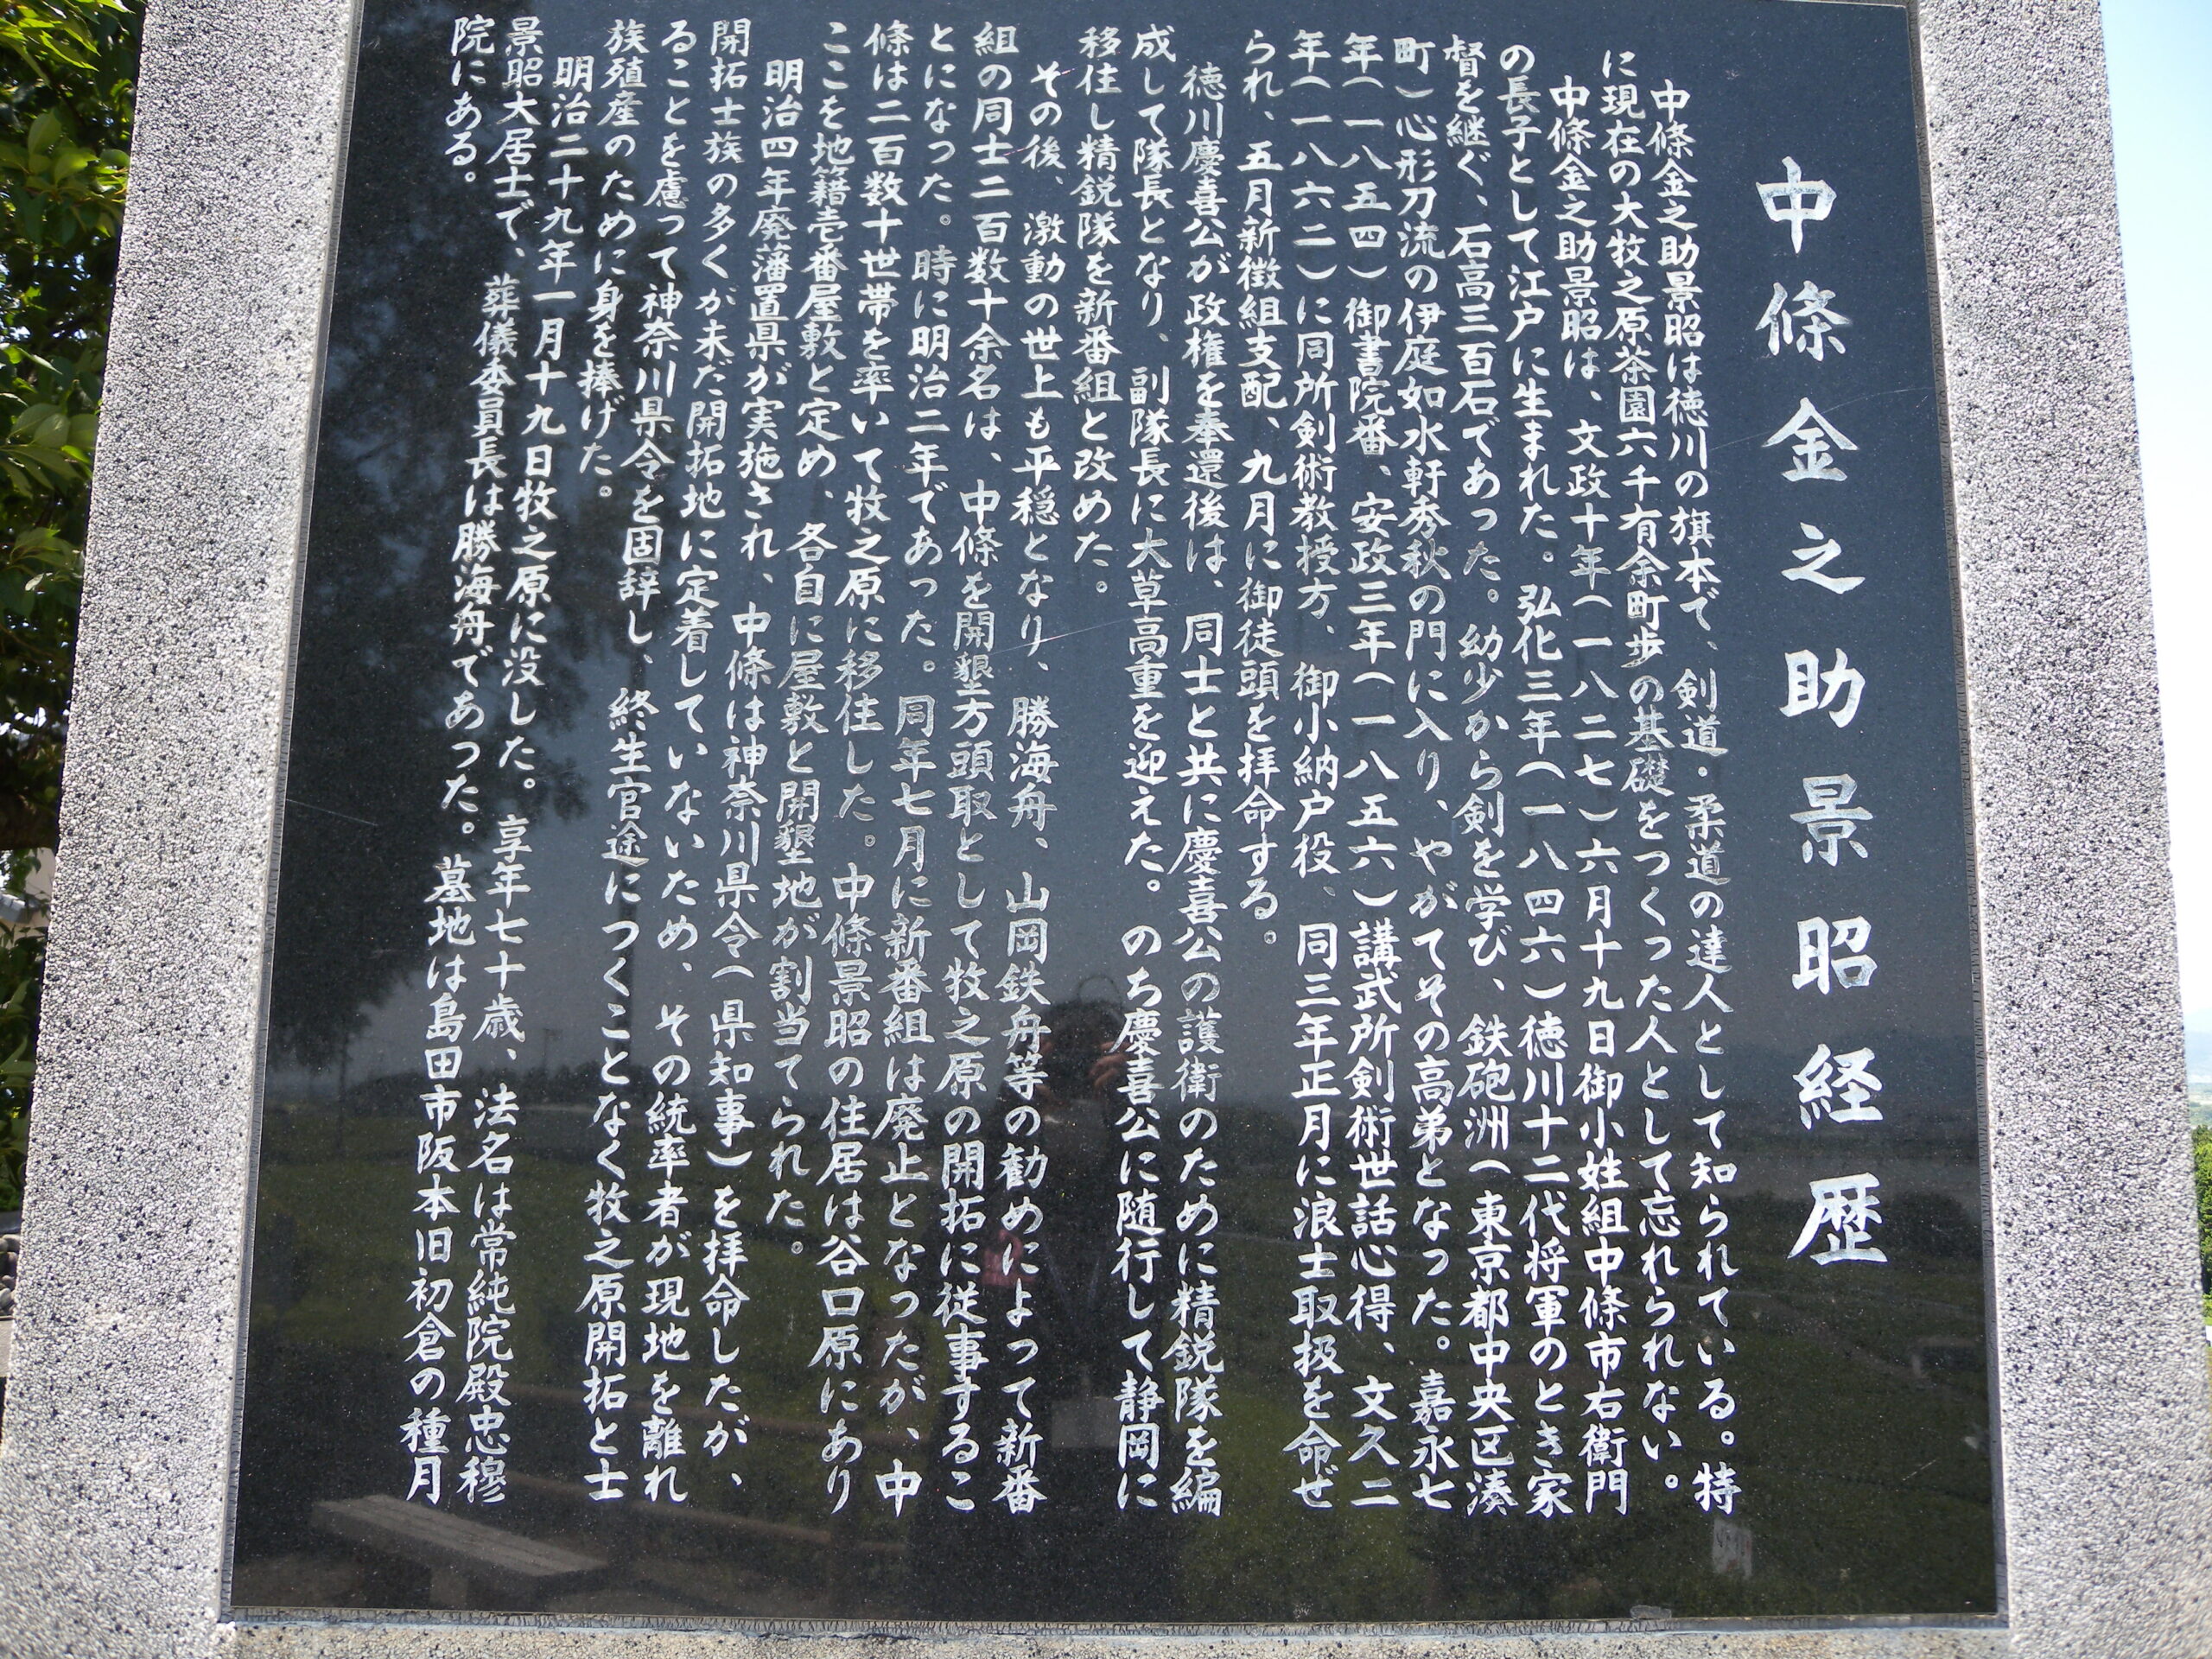 中條金之助景昭経歴
中條金之助景昭は徳川の旗本で、剣道・柔道の達人として知られている。特
に現在の大牧之原茶園六千有余町歩の基礎をつくった人として忘れられない。
中條金之助景昭は、文政十年(一八二七)六月十九日御小姓組中條市右衛門
の長子として江戸に生まれた。弘化三年(一八四六)徳川十二代将軍のとき家
督を継ぐ、石高三百石であった。幼少から剣を学び、鉄砲洲(東京都中央区湊
町)心形刀流の伊庭如水軒秀秋の門に入り、やがてその高弟となった。嘉永七
年(一八五四)御書院番、安政三年(一八五六)講武所剣術世話心得、文久二
年(一八六二)に同所剣術教授方、御小納戸役、同三年正月に浪士取扱を命ぜ
られ、五月新徴組支配、九月に御徒頭を拝命する。
徳川慶喜公が政権を奉還後は、同士と共に慶喜公の護衛のために精鋭隊を編
成して隊長となり、副隊長に大草高重を迎えた。のち慶喜公に随行して静岡に
移住し精鋭隊を新番組と改めた。
その後、激動の世上も平穏となり、勝海舟、山岡鉄舟等の勧めによって新番
組の同士二百数十余名は、中條を開墾方頭取として牧之原の開拓に従事するこ
とになった。時に明治二年であった。同年七月に新番組は廃止となったが、中
條は二百数十世帯を率いて牧之原に移住した。中條景昭の住居は谷口原にあり
ここを地籍壱番屋敷と定め、各自に屋敷と開墾地が割当てられた。
明治四年廃藩置県が実施され、中條は神奈川県令(県知事)を拝命したが、
開拓士族の多くが未だ開拓地に定着していないため、その統率者が現地を離れ
ることを慮って神奈川県令を固辞し、終生官途につくことなく牧之原開拓と士
族殖産のために身を捧げた。
明治二十九年一月十九日牧之原に没した。享年七十歳、法名は常純院殿忠穆
景昭大居士で、葬儀委員長は勝海舟であった。墓地は島田市阪本旧初倉の種月
院にある。